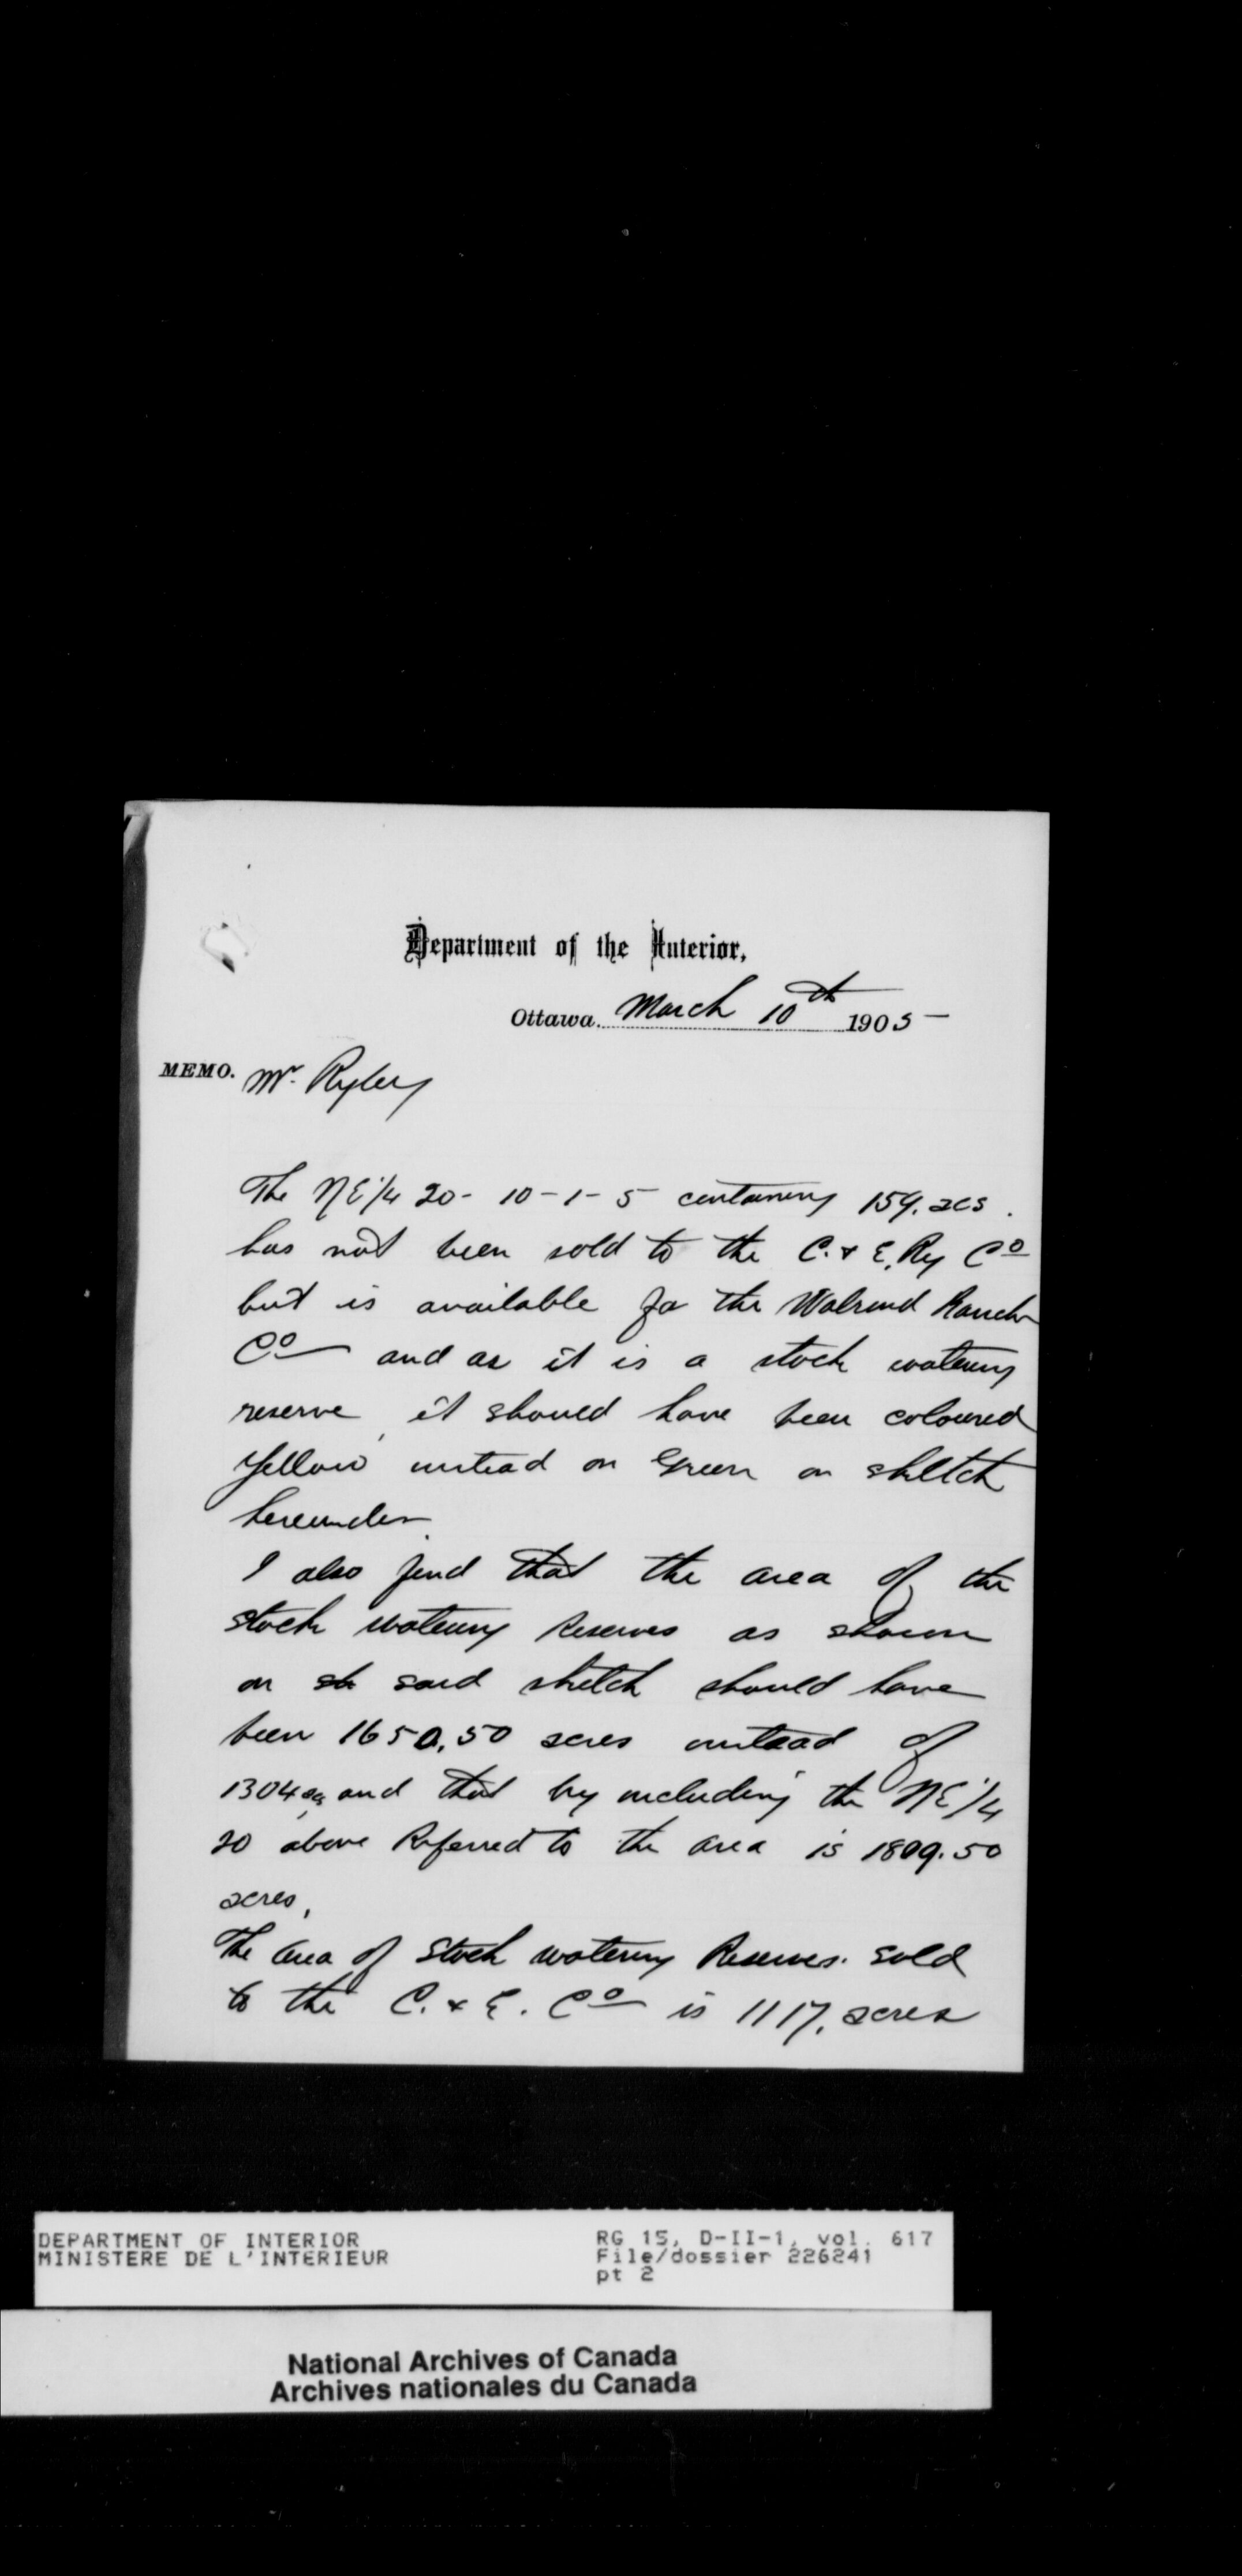 Department of the Interior,
Ottawa. March 10th 1905
MEMO. Mr. Ryley
The NE 1/4 20 - 10 - 1 - 5 containing 159. acs.
has not been sold to the C. & E. Ry Co
but is available for the Walrond Ranch
Co and as it is a stock watering
reserve, it should have been coloured
Yellow instead on Green on sketch
hereunder.
I also find that the area of the
stock watering Reserves as shown
on sh said sketch should have
been 1650.50 acres instead of
1304 and that by including the NE 1/4
20 above Referred to the area is 1809.50
acres,
The area of Stock watering Reserves. sold
to the C. & E. Co is 1117. acres
DEPARTMENT OF INTERIOR
MINISTERE DE L'INTERIEUR
RG 15, D-II-1, vol. 617
File/dossier 226241
pt 2
National Archives of Canada
Archives nationales du Canada